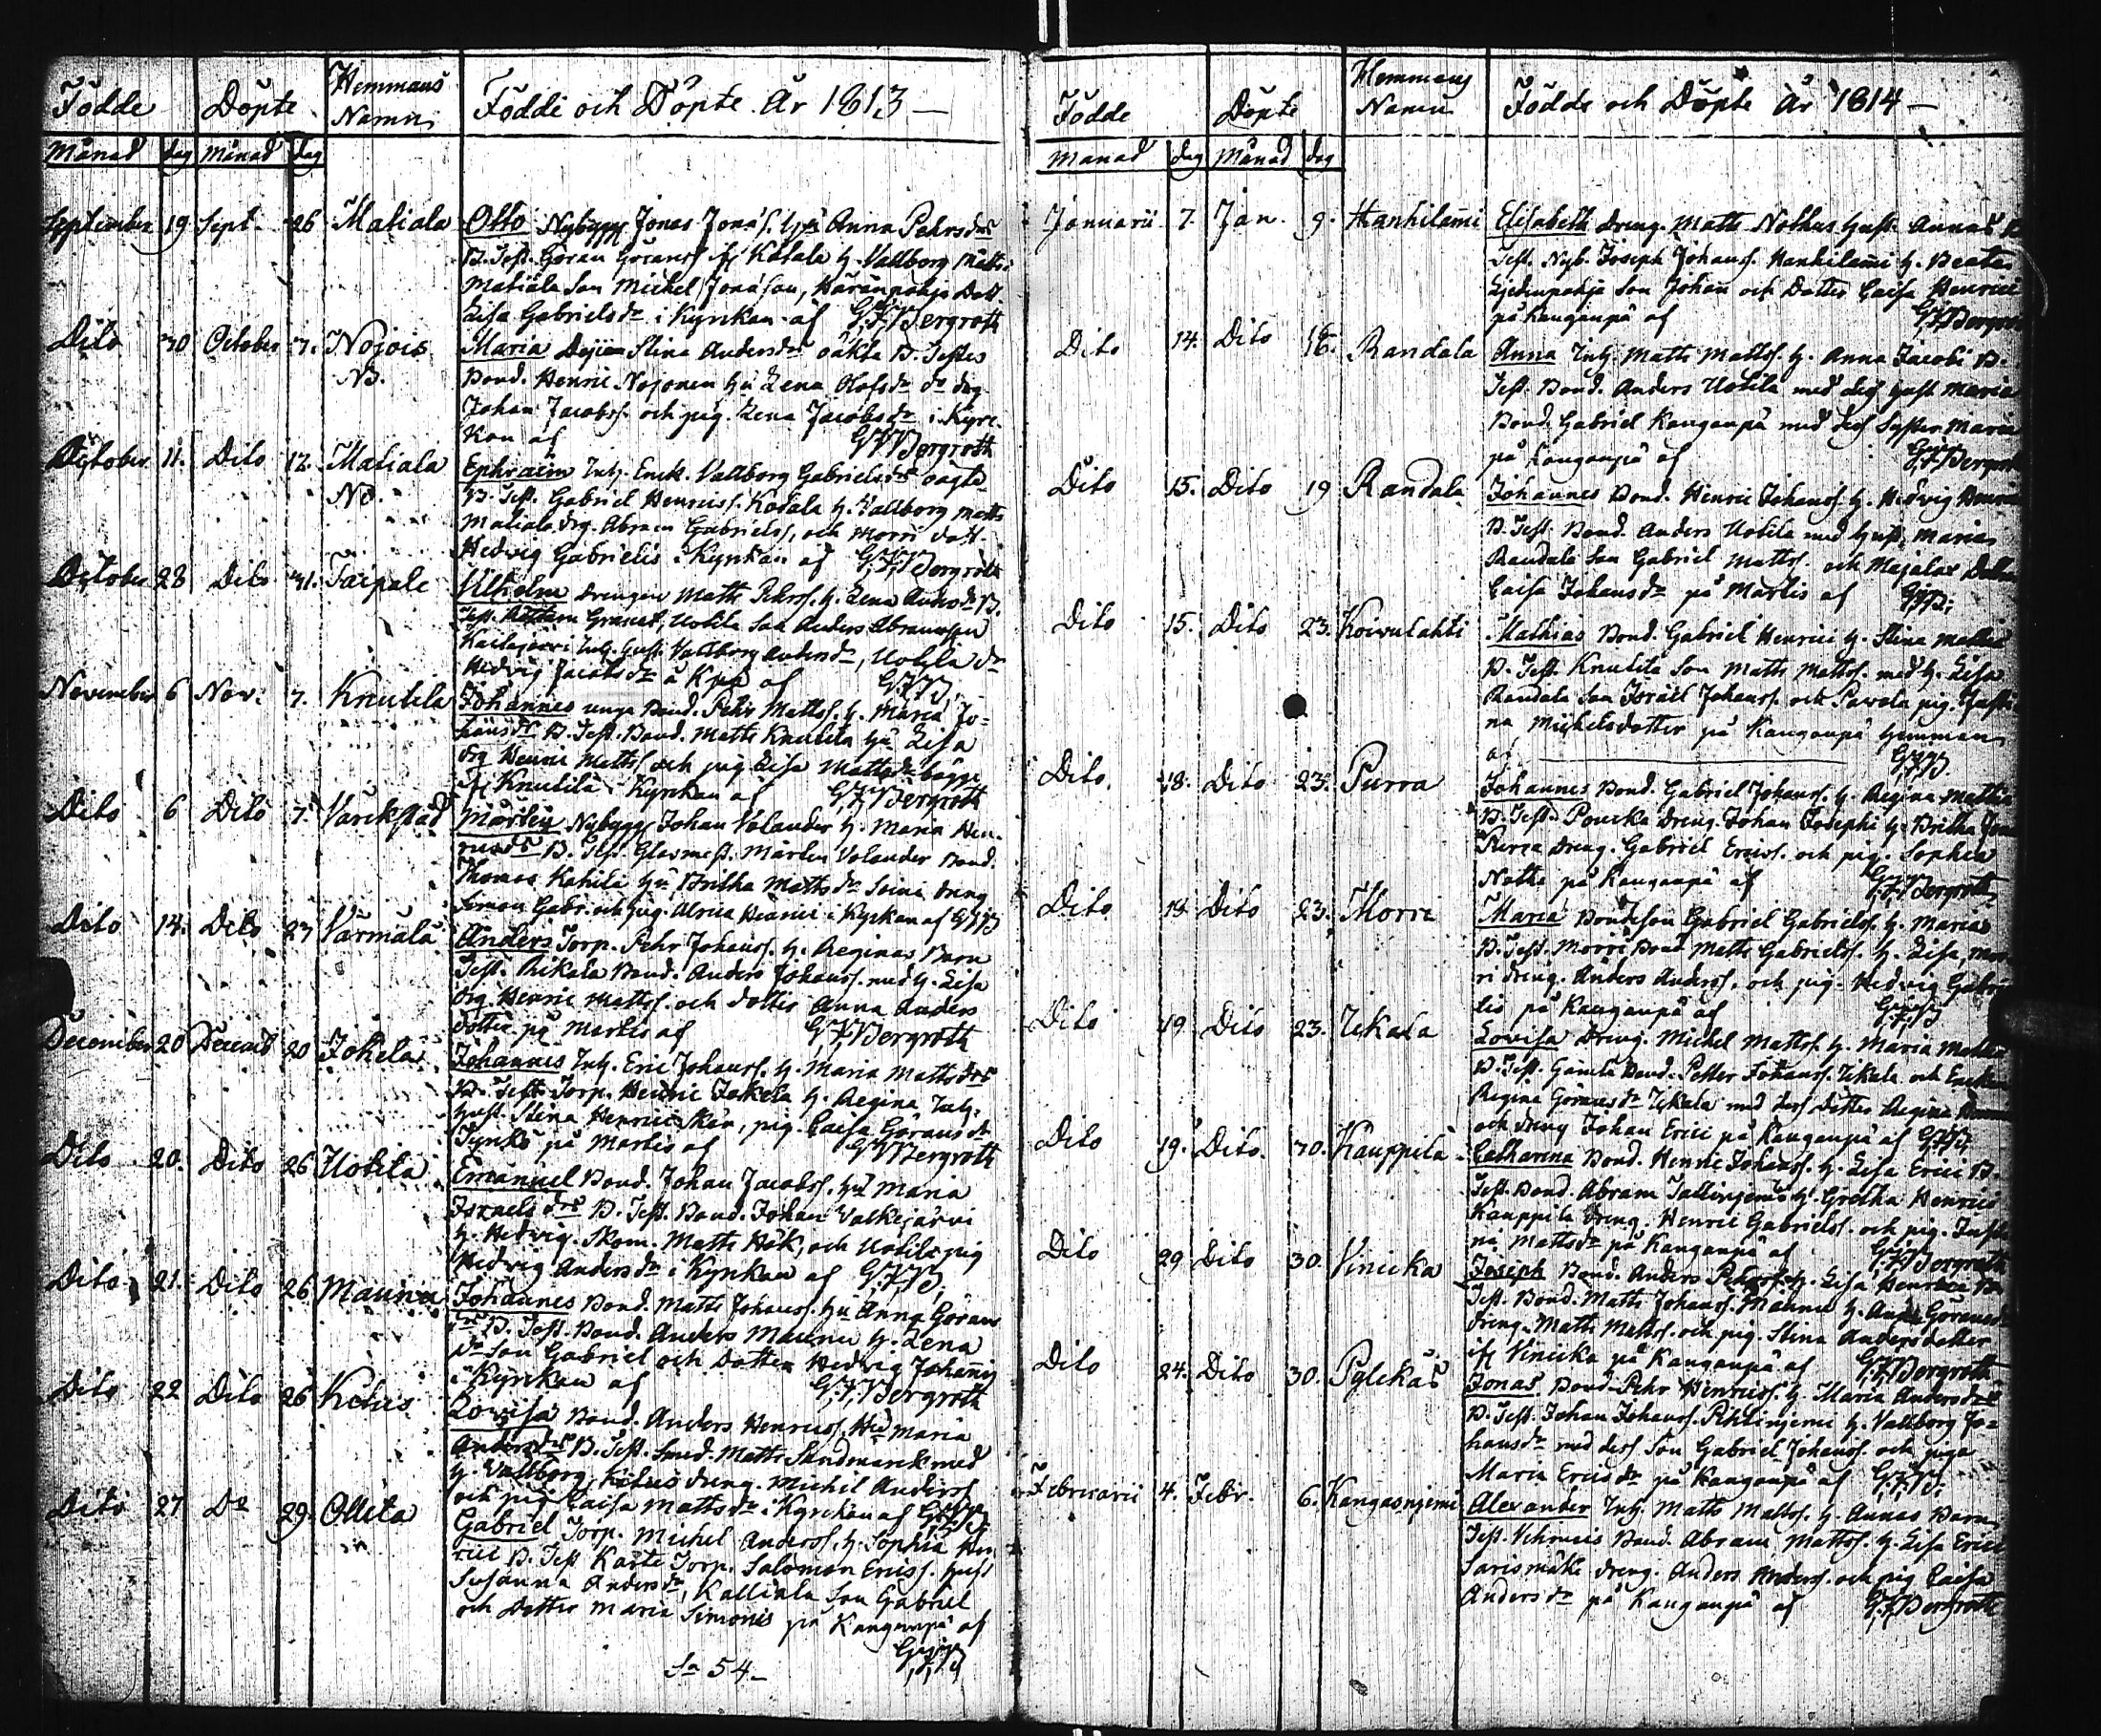 Födde Döpte Hemmans Namn Födde och Döpte År 1813 —
Månad dag Månad dag
September 19 Sept. 26 Matiala Otto Nybygg. Jonas Jonæs. H. Anna Pehrsdrs
B. Test. Göran Göranss. Katala H. Vallborg Matts
Matiala Son Michel Jonæson, Dott.
Lisa Gabrielsdr i Kyrkan af G.F. Bergroth
Dito 30 October 3. Nojois Maria Stina Andersdrs oäkta B. Testes
NB. Bond. Henric Nojonen Hu Lena Olofsdr dr drg
Johan Jacobss. och pig. Lena Jacobsdr i Kyrc-
kan af G.F. Bergroth
October 11. Dito 12. Matiala Ephraim Inh. Enck. Vallborg Gabrielsdrs oägta
NB. B. Test. Gabriel Henricss. Kodala H. Vallborg Matts
Matiala drg. Abram Gabrielss, och Morri dott.
Hedvig Gabrielis i Kyrkan af G.F. Bergroth
October 28 Dito 31. Taipale Vilhelm drengen Matts Pehrss. H. Lena Andersdr B.
Test. Granat, Uotila Son Anders Abramsson
Inh. Hust. Vallborg Andersdr, Uotila dr
Hedvig Jacobsdr å Kpa af G.F.B.
November 6 Nov. 7. Knutila Johannes unga Bond. Pehr Mattss. H. Maria Jo-
hansdr B. Test. Bond. Matts Knutila Hu Lisa
drg Henric Mattss och pig Lisa Mattsdr bägge
if Knutila i Kyrkan af G.F. Bergroth
Dito 6 Dito 7. Mårten Nybygg. Johan Volander H. Maria Hen-
ricsdrs B. Test. Glasmest. Mårten Volander Bond.
Thomas Kahila Hu Britha Mattsdr Soini dreng
Simon Gabr. och pig. Ulrica Henrici i Kyrkan af G.F.B
Dito 14. Dito 23 Värmälä Anders Torp. Pehr Johanss. H. Reginas Barn
Test. Rikala Bond. Anders Johanss. med H. Lisa
drg. Henric Mattss. och dotter Anna Anders
dotter på Martis af G.F. Bergroth
December 20 Decemb 20 Jokela Johannes Inh. Eric Johanss. H. Maria Mattsdrs
B. Test. Torp. Henric Jokela H. Regina Inh.
Hust. Stina Henrici, pig. Caisa Göransdr
på Martis af G.F. Bergroth
Dito 20. Dito 26 Uotila Emanuel Bond. Johan Jacobss. Hu Maria
Israelsdrs B. Test. Bond. Johan Valkejärvi
H. Hedvig. Skom. Matts Hök, och Uotila pig
Hedvig Andersdr i Kyrkan af G.F.B.
Dito 21. Dito 26 Maunu Johannes Bond. Matts Johanss. Hu Anna Görans
drs B. Test. Bond. Anders Maunu H. Lena
dr Son Gabriel och Dotter Hedvig Johannis
i Kyrkan af G.F. Bergroth
Dito 22 Dito 26 Ketus Lovisa Bond. Anders Henricss. Hu Maria
Andersdrs B. Test. Smed. Matts Sandmarck med
H. Vallborg, Ketus dreng. Michel Anderss
och pig Caisa Mattsdr i Kyrckan af G.F.B
Dito 27 Do 29. Ollila Gabriel Torp. Michel Anderss. H. Sophia Hen-
rici B. Test Karte Torp. Salomon Ericss. Hust
Susanna Andersdr, Kalliala Son Gabriel
och Dotter Maria Simonis på Kanganpä af
G.F.B
Sa 54.
Födde Döpte Hemmans Namn Födde och Döpte År 1814 —
Månad dag Månad dag
Januarii 7. Jan. 9. Hanhilami Elisabeth dreng. Matts Nothus Hust. Annas
Test. Nyb. Joseph Johanss. Hanhilami H. Beata
Son Johan och Dotter Caisa Henrici
på Kangaupä af G.F. Bergroth
Dito 14. Dito 16. Randala Anna Inh. Matts Mattss. H. Anna Jacobi B.
Test. Bond. Anders Uotila med dess Hust Maria
Bond. Gabriel Kangaupä med dess Syster Maria
på Kangaupä af G.F. Bergroth
Dito 15. Dito 19 Randala Johannes Bond. Henric Johanss. H. Hedvig
B. Test. Bond. Anders Uotila med Hust. Maria
Randala Son Gabriel Mattss. och Majalax
Caisa Johansdr på Martis af G.F.B.
Dito 15. Dito 23. Koivulahti Mathias Bond. Gabriel Henrici H. Stina
B. Test. Knutila Son Matts Mattss. med H. Lisa
Randala Son Israel Johanss. och Pavola pig. Justi-
na Michelsdotter på Kangaupä Hemman
af G.F.B.
Dito. 18. Dito 23. Purra Johannes Bond. Gabriel Johanss. H. Regina
B. Test. dreng. Johan Josephi H. Britha
Purra dreng. Gabriel Ericss. och pig. Sophia
på Kangaupä af G.F. Bergroth
Dito 18 Dito 23. Morri Maria Bondeson Gabriel Gabrielss. H. Marias
B. Test. Morri Bond Matts Gabrielss. H. Lisa, Mor-
ri dreng. Anders Anderss. och pig. Hedvig Gabrie-
lis på Kangaupä af G.F.B
Dito 19 Dito 23. Ukala Lovisa dreng. Michel Mattss. H. Maria
B. Test. Gamla Bond. Petter Johanss. Ukala och Enckan
Regina Göransdr Ukala med dess Dotter Regina
och dreng Johan Erici på Kangaupä af G.F.B.
Dito 19. Dito. 30. Kauppila Catharina Bond. Henric Johanss. H. Lisa Erici B.
Test. Bond. Abram H. Gretha Henrici
Kauppila dreng. Henric Gabrielss. och pig. Justi-
na Mattsdr på Kangaupä af G.F. Bergroth
Dito 29 Dito 30. Vinicka Joseph Bond. Anders Pehrss. H. Lisa
Test. Bond. Matts Johanss. Maunu H. Anna Göransdr
dreng. Matts Mattss. och pig. Stina Andersdotter
if Vinicka på Kangaupä af G.F. Bergroth
Dito 24. Dito 30. Pylckäs Jonas Bond. Pehr Henricss. H. Maria Andersdrs
B. Test. Johan Johanss. H. Vallborg Jo-
hansdr med dess Son Gabriel Johanss. och piga
Maria Ericsdr på Kangaupä af G.F.B.
Februarii 4. Febr. 6. Kangasnjemi Alexander Inh. Matts Mattss. H. Annas Barn
Test. Bond. Abram Mattss. H. Lisa Erici
dreng. Anders Anderss. och pig Caisa
Andersdr på Kangaupä af G.F. Bergroth